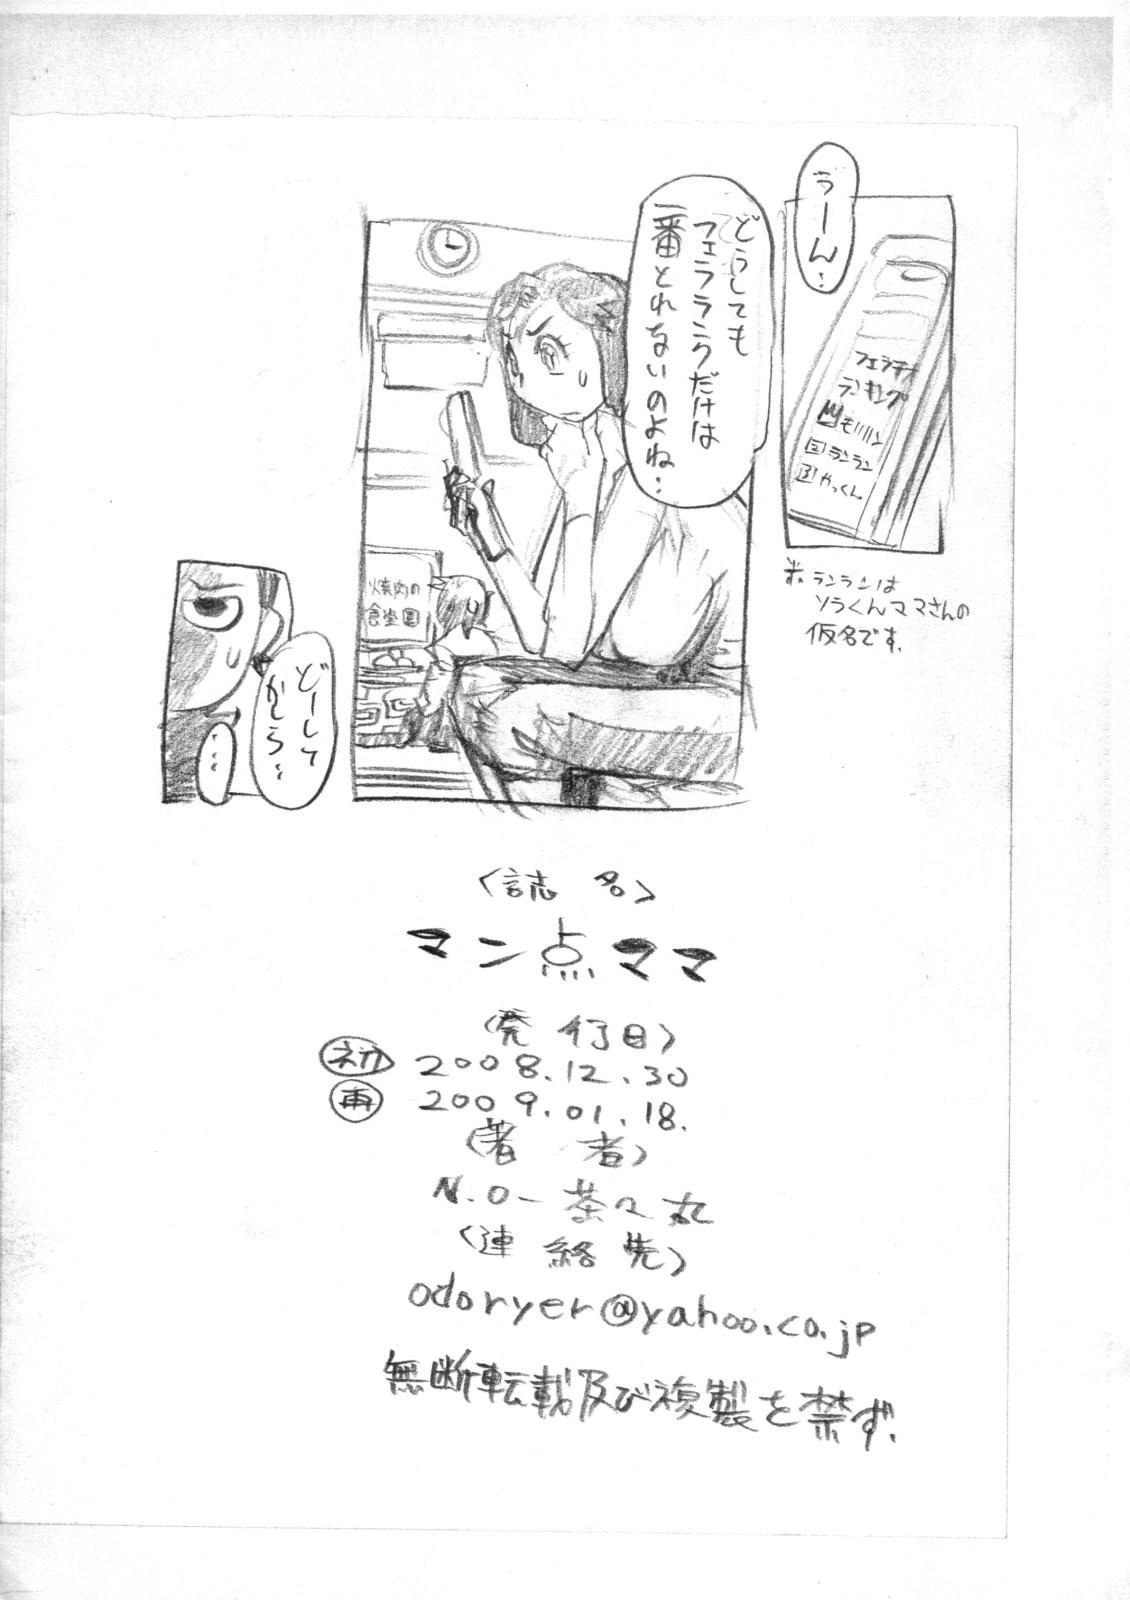 うーん…
フェラチオ
ランキング
モリリン
2 ランラン
3 やっくん
※ランランは
ソラくんママさんの
仮名です。
どうしても
フェラランクだけは
一番とれないのよね…
焼肉の
食堂園
どーして
かしら…
…
〈誌 名〉
マン点ママ
〈発 行日〉
初 2008.12.30
再 2009.01.18.
〈著 者〉
N.O-茶々丸
〈連 絡 先〉
odoryer@yahoo.co.jp
無断転載及び複製を禁ず.